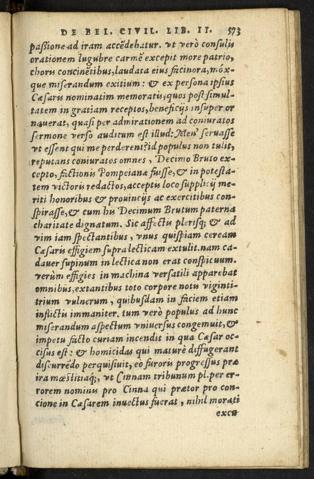 DE BEL. CIVIL. LIB. II. 573
passione ad iram accēdebatur. vt verò consulis
orationem lugubre carmē excepit more patrio,
choris concinētibus, laudata eius facinora, móx-
que miserandum exitium: & ex persona ipsius
Cæsaris nominatim memorati, quos post simul-
tatem in gratiam receptos, beneficijs insuper or
nauerat, quasi per admirationem ad coniuratos
sermone verso auditum est illud: Men' seruasse
vt essent qui me perderent? id populus non tulit,
reputans coniuratos omnes, Decimo Bruto ex-
cepto, factionis Pompeianæ fuisse, & in potesta-
tem victoris redactos, acceptis loco supplicij me-
riti honoribus & prouincijs ac exercitibus con-
spirasse, & tum hu Decimum Brutum paterna
charitate dignatum. Sic affectis plerisq; & ad
vim iam spectantibus, vnus quispiam ceream
Cæsaris effigiem supra lecticam extulit. nam ca-
dauer supinum in lectica non erat conspicuum.
verùm effigies in machina versatili apparebat
omnibus, extantibus toto corpore notis viginti-
trium vulnerum, quibusdam in faciem etiam
inflictis immaniter. tum verò populus ad hunc
miserandum aspectum vniuersus congemuit, &
impetu facto curiam incendit in qua Cæsar oc-
cisus est: & homicidas qui maturè diffugerant
discurrēdo perquisiuit, eò furoris progressus præ
ira mœstitiaq; vt Cinnam tribunum pl. per er-
rorem nominis pro Cinna qui prætor pro con-
cione in Cæsarem inuectus fuerat, nihil morati
excu